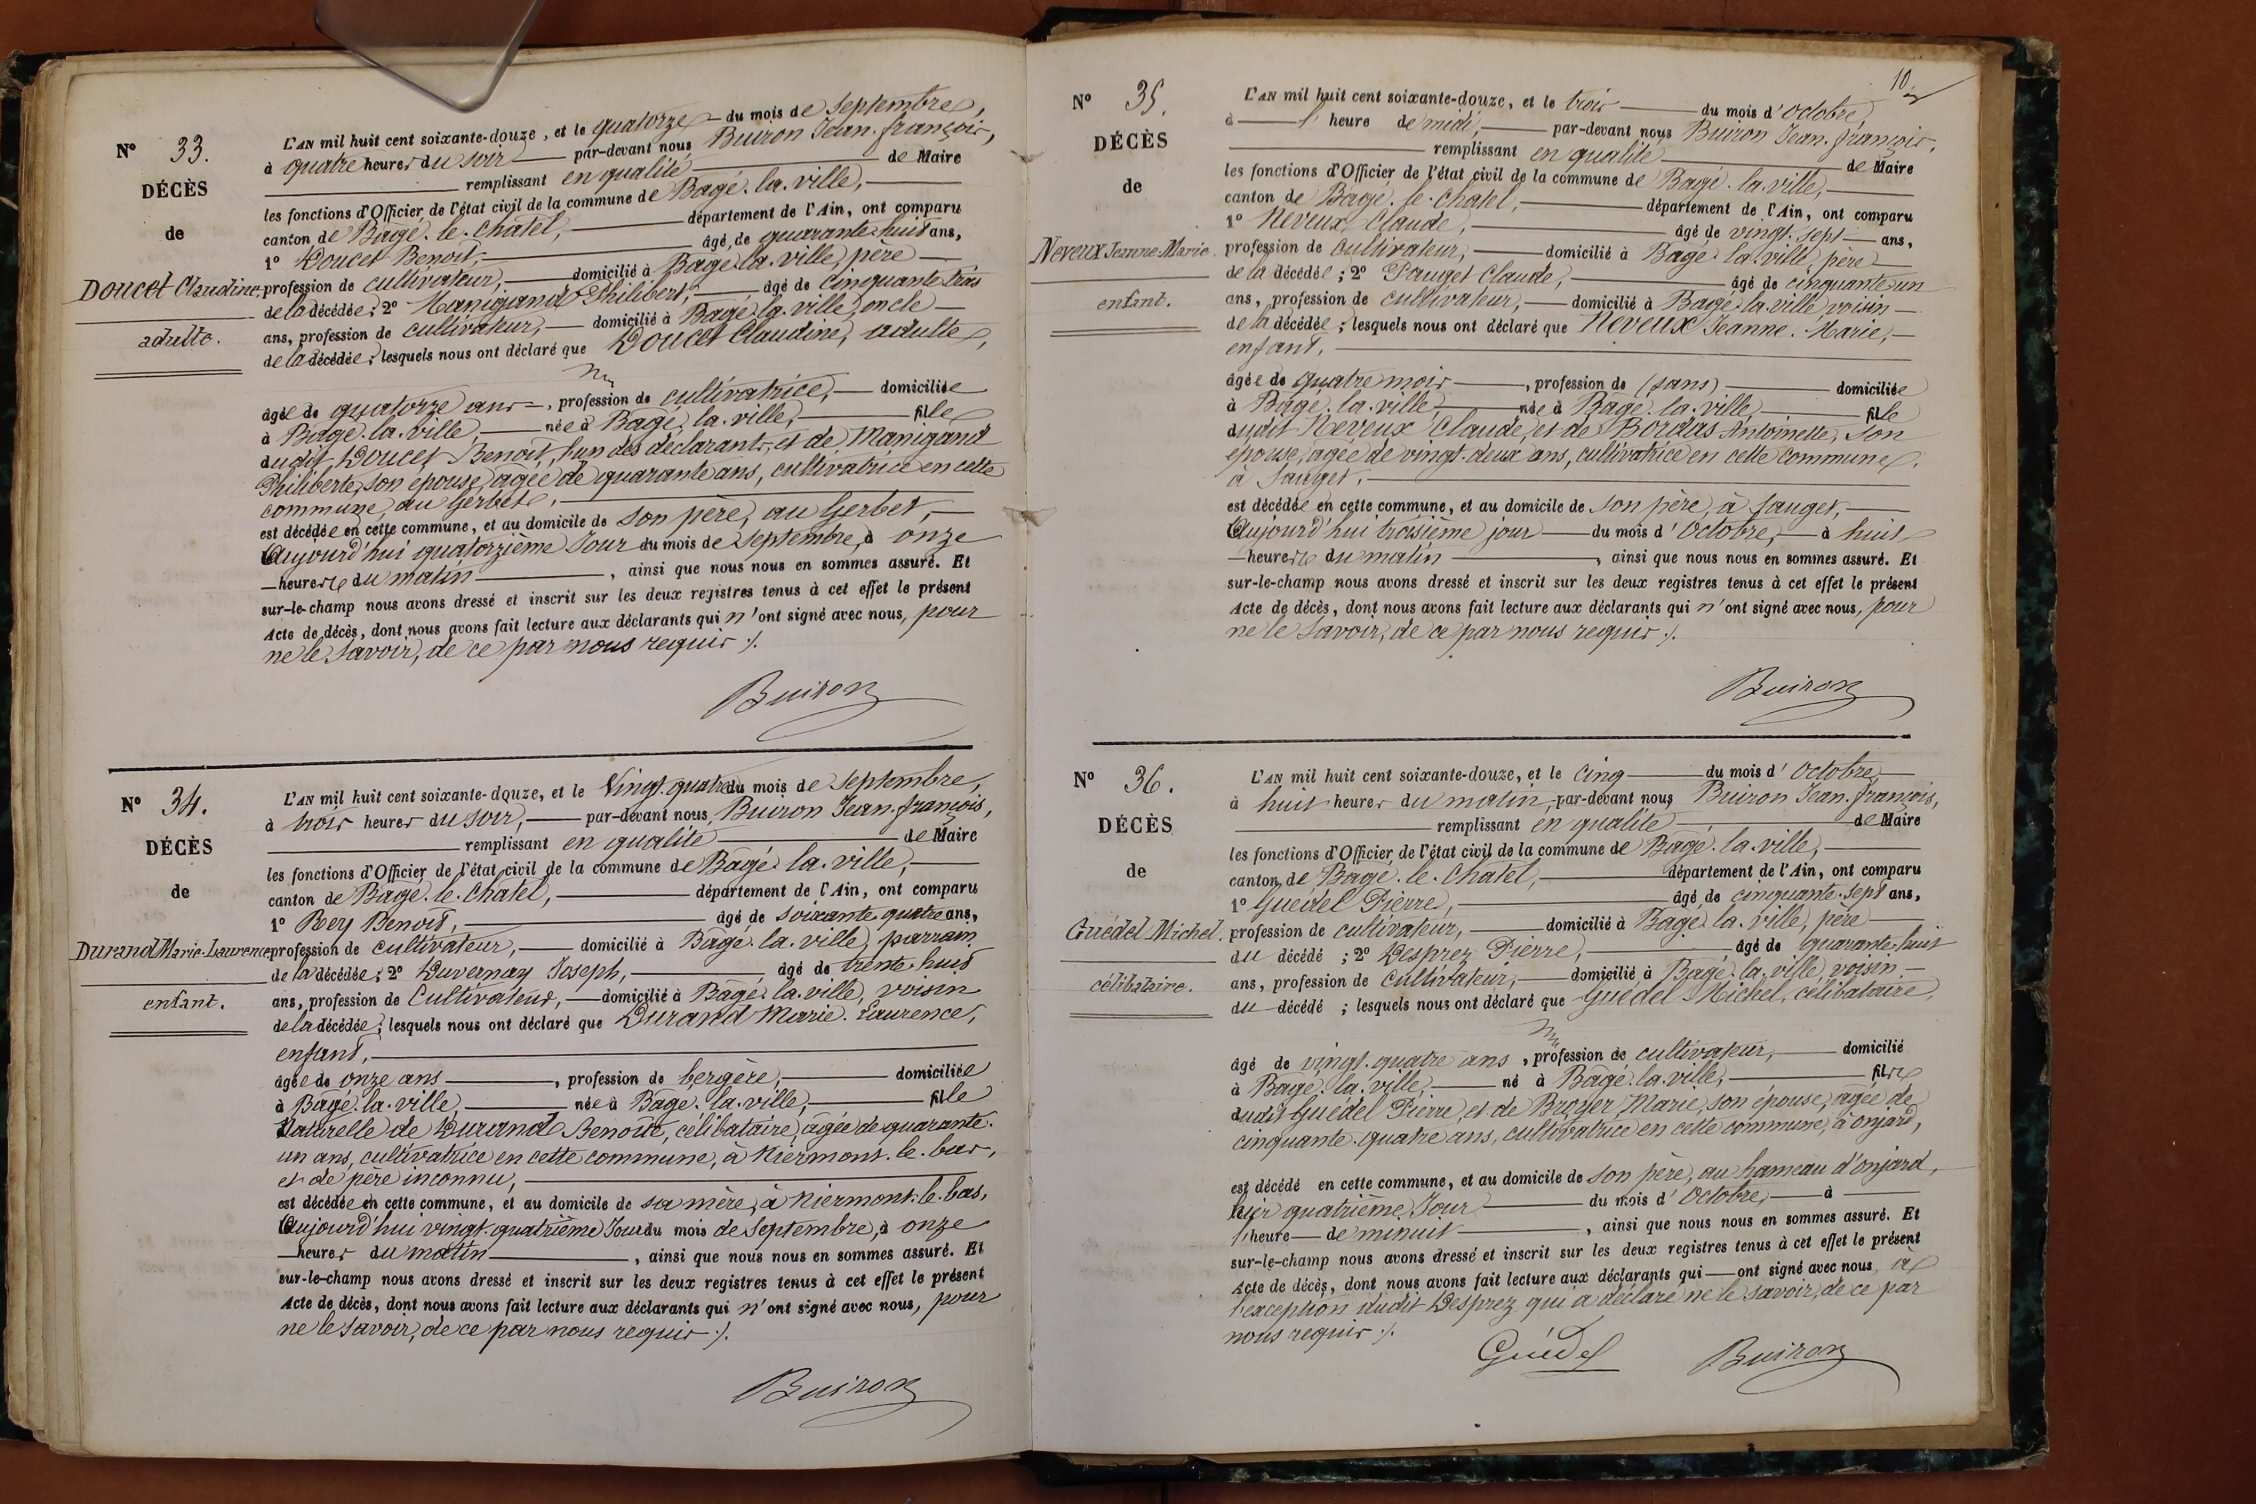 N° 33.
DÉCÈS
de
Doucet Claudine
adulte.
L'AN mil huit cent soixante-douze, et le quatorze du mois de Septembre,
à quatre heures du soir par-devant nous Buiron Jean-françois,
remplissant en qualité de Maire
les fonctions d'Officier de l'état civil de la commune de Bagé-la-ville,
canton de Bagé-le-Chatel, département de l'Ain, ont comparu
1° Doucet Benoit, âgé de quarante-huit ans,
profession de cultivateur, domicilié à Bagé-la-ville, père
de la décédée; 2° Manigand Philibert, âgé de cinquante trois
ans, profession de cultivateur, domicilié à Bagé-la-ville, oncle
de la décédée; lesquels nous ont déclaré que Doucet Claudine, adulte,
âgée de quatorze ans, profession de cultivatrice, domiciliée
à Bagé-la-ville, née à Bagé-la-ville, fille
dudit Doucet Benoit, l'un des déclarants, et de Manigand
Philiberte, son épouse, agée de quarante ans, cultivatrice en cette
commune, au Gerbet,
est décédée en cette commune, et au domicile de son père, au Gerbet,
Aujourd'hui quatorzième Jour du mois de Septembre, à onze
heures du matin, ainsi que nous nous en sommes assuré. Et
sur-le-champ nous avons dressé et inscrit sur les deux registres tenus à cet effet le présent
Acte de décès, dont nous avons fait lecture aux déclarants qui n'ont signé avec nous, pour
ne le savoir, de ce par nous requis ./.
Buiron
N° 34.
DÉCÈS
de
Durand Marie-Laurence
enfant.
L'AN mil huit cent soixante-douze, et le Vingt-quatre du mois de Septembre,
à trois heures du soir, par-devant nous, Buiron Jean-françois,
remplissant en qualité de Maire
les fonctions d'Officier de l'état civil de la commune de Bagé-la-ville,
canton de Bagé-le-Chatel, département de l'Ain, ont comparu
1° Rey Benoit, âgé de soixante-quatre ans,
profession de cultivateur, domicilié à Bagé-la-ville, parrain
de la décédée; 2° Duvernay Joseph, âgé de trente-huit
ans, profession de Cultivateur, domicilié à Bagé-la-ville, voisin
de la décédée; lesquels nous ont déclaré que Durand Marie-Laurence,
enfant,
âgée de onze ans, profession de bergère, domiciliée
à Bagé-la-ville, née à Bagé-la-ville, fille
Naturelle de Durand Benoite, célibataire, agée de quarante-
un ans, cultivatrice en cette commune, à Niermont-le-bas,
et de père inconnu,
est décédée en cette commune, et au domicile de sa mère, à Niermont-le-bas,
Aujourd'hui vingt-quatrième Jour du mois de Septembre, à onze
heures du matin, ainsi que nous nous en sommes assuré. Et
sur-le-champ nous avons dressé et inscrit sur les deux registres tenus à cet effet le présent
Acte de décès, dont nous avons fait lecture aux déclarants qui n'ont signé avec nous, pour
ne le savoir, de ce par nous requis ./.
Buiron
10
N° 35.
DÉCÈS
de
Neveux Jeanne-Marie
enfant.
L'AN mil huit cent soixante-douze, et le trois du mois d'Octobre,
à 1 heure de midi, par-devant nous Buiron Jean-françois,
remplissant en qualité de Maire
les fonctions d'Officier de l'état civil de la commune de Bagé-la-ville,
canton de Bagé-le-Chatel, département de l'Ain, ont comparu
1° Neveux Claude, âgé de vingt-sept ans,
profession de cultivateur, domicilié à Bagé-la-ville, père
de la décédée; 2° Pauget Claude, âgé de cinquante-un
ans, profession de cultivateur, domicilié à Bagé-la-ville, voisin
de la décédée; lesquels nous ont déclaré que Neveux Jeanne-Marie,
enfant,
âgée de quatre mois, profession de (sans) domiciliée
à Bagé-la-ville, née à Bagé-la-ville, fille
dudit Neveux Claude, et de Bordas Antoinette, son
épouse, agée de vingt-deux ans, cultivatrice en cette commune,
à Sauget,
est décédée en cette commune, et au domicile de son père, à Sauget,
Aujourd'hui troisième jour du mois d'Octobre, à huit
heures du matin, ainsi que nous nous en sommes assuré. Et
sur-le-champ nous avons dressé et inscrit sur les deux registres tenus à cet effet le présent
Acte de décès, dont nous avons fait lecture aux déclarants qui n'ont signé avec nous, pour
ne le savoir, de ce par nous requis ./.
Buiron
N° 36.
DÉCÈS
de
Guédel Michel.
célibataire.
L'AN mil huit cent soixante-douze, et le cinq du mois d'Octobre,
à huit heures du matin, par-devant nous Buiron Jean-françois,
remplissant en qualité de Maire
les fonctions d'Officier de l'état civil de la commune de Bagé-la-ville,
canton de Bagé-le-Chatel, département de l'Ain, ont comparu
1° Guédel Pierre, âgé de cinquante-sept ans,
profession de cultivateur, domicilié à Bagé-la-ville, père
du décédé; 2° Desprez Pierre, âgé de quarante-huit
ans, profession de Cultivateur, domicilié à Bagé-la-ville, voisin
du décédé; lesquels nous ont déclaré que Guédel Michel, célibataire,
âgé de vingt-quatre ans, profession de cultivateur, domicilié
à Bagé-la-ville, né à Bagé-la-ville, fils
dudit Guédel Pierre, et de Broyer Marie, son épouse, agée de
cinquante-quatre ans, cultivatrice en cette commune, à onjard,
est décédé en cette commune, et au domicile de son père, au hameau d'onjard,
hier quatrième Jour du mois d'Octobre, à
1 heure de minuit, ainsi que nous nous en sommes assuré. Et
sur-le-champ nous avons dressé et inscrit sur les deux registres tenus à cet effet le présent
Acte de décès, dont nous avons fait lecture aux déclarants qui ont signé avec nous, à
l'exception dudit Desprez qui a déclaré ne le savoir, de ce par
nous requis ./.
Guédel Buiron